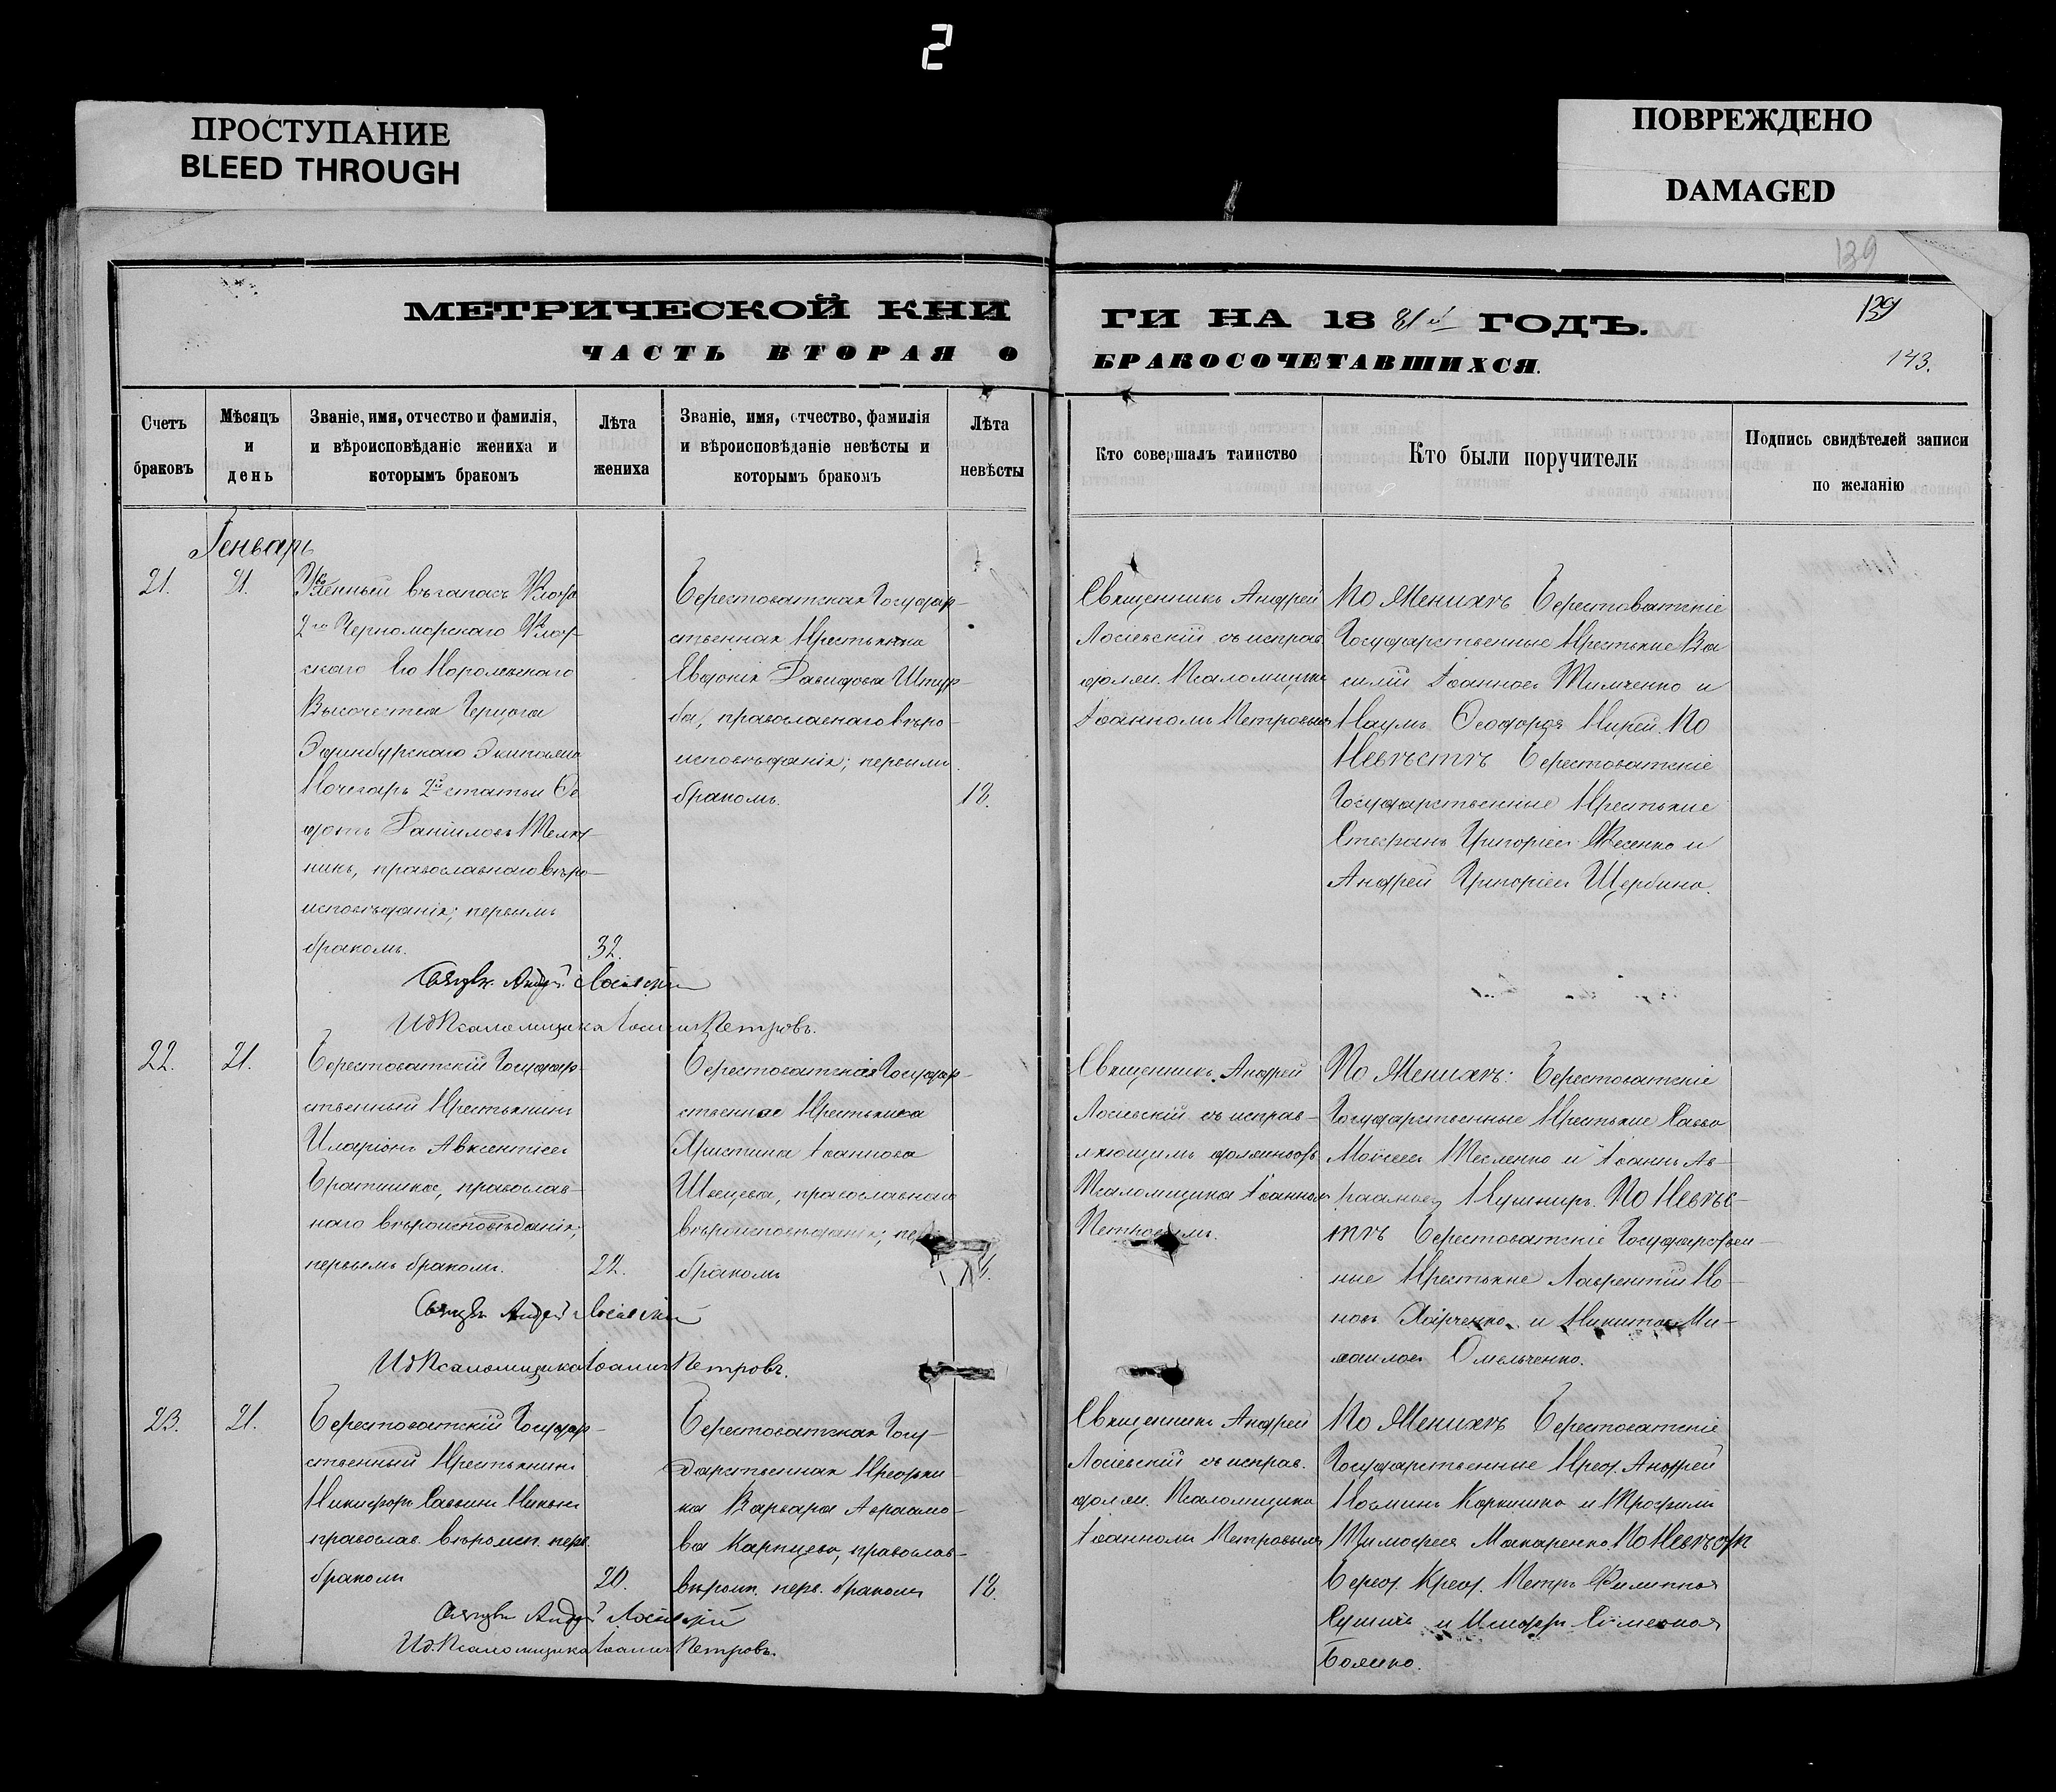 2
ПРОСТУПАНИЕ
BLEED THROUGH
ПОВРЕЖДЕНО
DAMAGED
139
139
143.
МЕТРИЧЕСКОЙ КНИ
ГИ НА 1881й ГОДЪ.
ЧАСТЬ ВТОРАЯ О
БРАКОСОЧЕТАВШИХСЯ.
Счетъ браковъ
Мѣсяцъ и день
Званіе, имя, отчество и фамилія,
и вѣроисповѣданіе жениха и
которымъ бракомъ
Лѣта жениха
Званіе, имя, отчество, фамилія
и вѣроисповѣданіе невѣсты и
которымъ бракомъ
Лѣта невѣсты
Кто совершалъ таинство
Кто были поручители
Подпись свидѣтелей записи
по желанію
Генварь
21.
21.
въ запасъ Флота
2го Черноморскаго Флот-
скаго Его Королевскаго
Высочества Герцога
Эдинбургскаго Экипажа
Кочегаръ 2й статьи Ѳе
дотъ Даніиловъ
никъ, православнаго вѣро-
исповѣданія; первымъ
бракомъ.
32.
Берестоватская Государ-
ственная Крестьянка
Евдокія Давидова
ба, православнаго вѣро-
исповѣданія; первымъ
бракомъ.
18.
Священникъ Андрей
Лосіевскій съ исправ.
должн. Псаломщика
Іоанномъ Петровымъ
По Женихѣ Берестоватскіе
Государственные Крестьяне Ва
силій Іоанновъ Тимченко и
Наумъ Ѳеодоровъ По
Невѣстѣ Берестоватскіе
Государственные Крестьяне
Стефанъ Григоріевъ Фесенко и
Андрей Григоріевъ Щербина.
Священ. Андрей Лосіевскій
Ид Псаломщика Іоаннъ Петровъ.
22.
21.
Берестоватскій Государ-
ственный Крестьянинъ
Иларіонъ Авксентіевъ
Братишка, православ-
наго вѣроисповѣданія;
первымъ бракомъ.
22.
Берестоватская Государ-
ственная Крестьянка
Христина Іоаннова
Швецева, православнаго
вѣроисповѣданія;
бракомъ
Священникъ Андрей
Лосіевскій съ исправ-
ляющимъ должность
Псаломщика Іоанномъ
Петровымъ.
По Женихѣ: Берестоватскіе
Государственные Крестьяне Савва
Моисеевъ Тесленко и Іоаннъ Ав-
раамовъ Кушниръ. По Невѣс-
тѣ Берестоватскіе Государствен-
ные Крестьяне Лаврентій Ко-
новъ Харченко и Никита Ми-
хаиловъ Омельченко.
Священ. Андрей Лосіевскій
Ид Псаломщика Іоаннъ Петровъ.
23.
21.
Берестоватскій Государ-
ственный Крестьянинъ
Никифоръ Саввинъ
православ. вѣроисп. перв.
бракомъ
20.
Берестоватская Госу-
дарственная Крестьян-
ка Варвара Авраамо-
ва Карпцева, православ-
вѣроисп. перв. бракомъ
18.
Священникъ Андрей
Лосіевскій съ исправ.
должн. Псаломщика
Іоанномъ Петровымъ
По Женихѣ Берестоватскіе
Государственные Крест. Андрей
Косминъ и Трофимъ
Тимофеевъ Макаренко. По Невѣстѣ
Берест. Крест. Петръ Филипповъ
и Сѵмеоновъ
Божко.
Священ. Андрей Лосіевскій
Ид. Псаломщика Іоаннъ Петровъ.